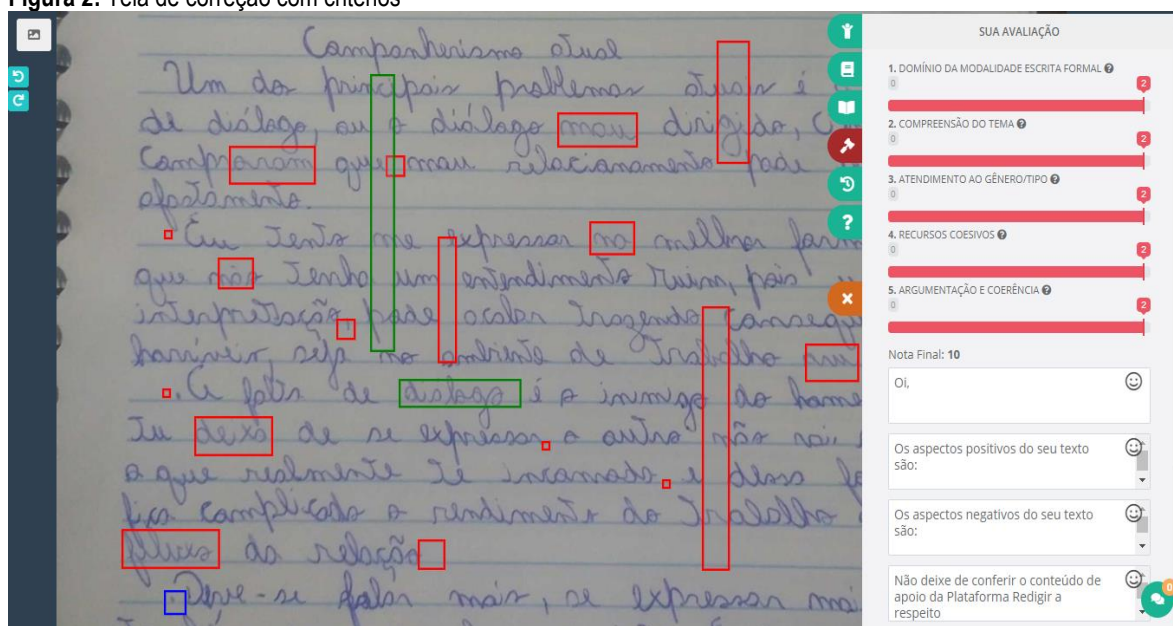 Figura 2: Tela de correção com critérios
Companheirismo atual
Um dos principais problemas atuais é
de diálogo, ou o diálogo mau dirigido,
que mau relacionamento pode
afastamento.
Eu tento me expressar na melhor
que não tenha um entendimento ruim, pois
interpretação, pode trazendo
horríveis, seja no ambiente de trabalho
A falta de dialogo é o inimigo do
Tu deixa de se expressar o outro não
o que realmente te incomoda e dessa
fica complicado o rendimento do trabalho
da relação
Deve-se falar mais, se expressar
SUA AVALIAÇÃO
1. DOMÍNIO DA MODALIDADE ESCRITA FORMAL
0
2
2. COMPREENSÃO DO TEMA
0
2
3. ATENDIMENTO AO GÊNERO/TIPO
0
2
4. RECURSOS COESIVOS
0
2
5. ARGUMENTAÇÃO E COERÊNCIA
0
2
Nota Final: 10
Oi,
Os aspectos positivos do seu texto
são:
Os aspectos negativos do seu texto
são:
Não deixe de conferir o conteúdo de
apoio da Plataforma Redigir a
respeito
0